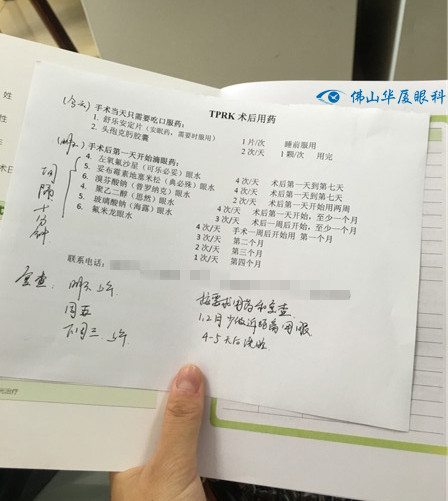 佛山华厦眼科
TPRK 术后用药
(今天) 手术当天只需要吃口服药:
1. 舒乐安定片 (安眠药,需要时服用) 1 片/次 睡前服用
2. 头孢克肟胶囊 2 次/天 1 颗/次 用完
(明天) 手术后第一天开始滴眼药:
4. 左氧氟沙星 (可乐必妥) 眼水 4 次/天 术后第一天到第七天
4. 妥布霉素地塞米松 (典必殊) 眼水 4 次/天 术后第一天到第七天
3. 溴芬酸钠 (普罗纳克) 眼水 2 次/天 术后第一天开始用两周
4. 聚乙二醇 (思然) 眼水 4 次/天 术后第一天开始,至少一个月
5. 玻璃酸钠 (海露) 眼水 3 次/天 术后一周后开始,至少一个月
6. 氟米龙眼水 4 次/天 手术一周后开始用 第一个月
3 次/天 第二个月
2 次/天 第三个月
1 次/天 第四个月
间隔十分钟
联系电话:
复查: 明天 上午
周五
下周三 上午
按要求用药和复查
1,2月少做近距离用眼
4-5天后洗脸
姓
性
术日
光治疗